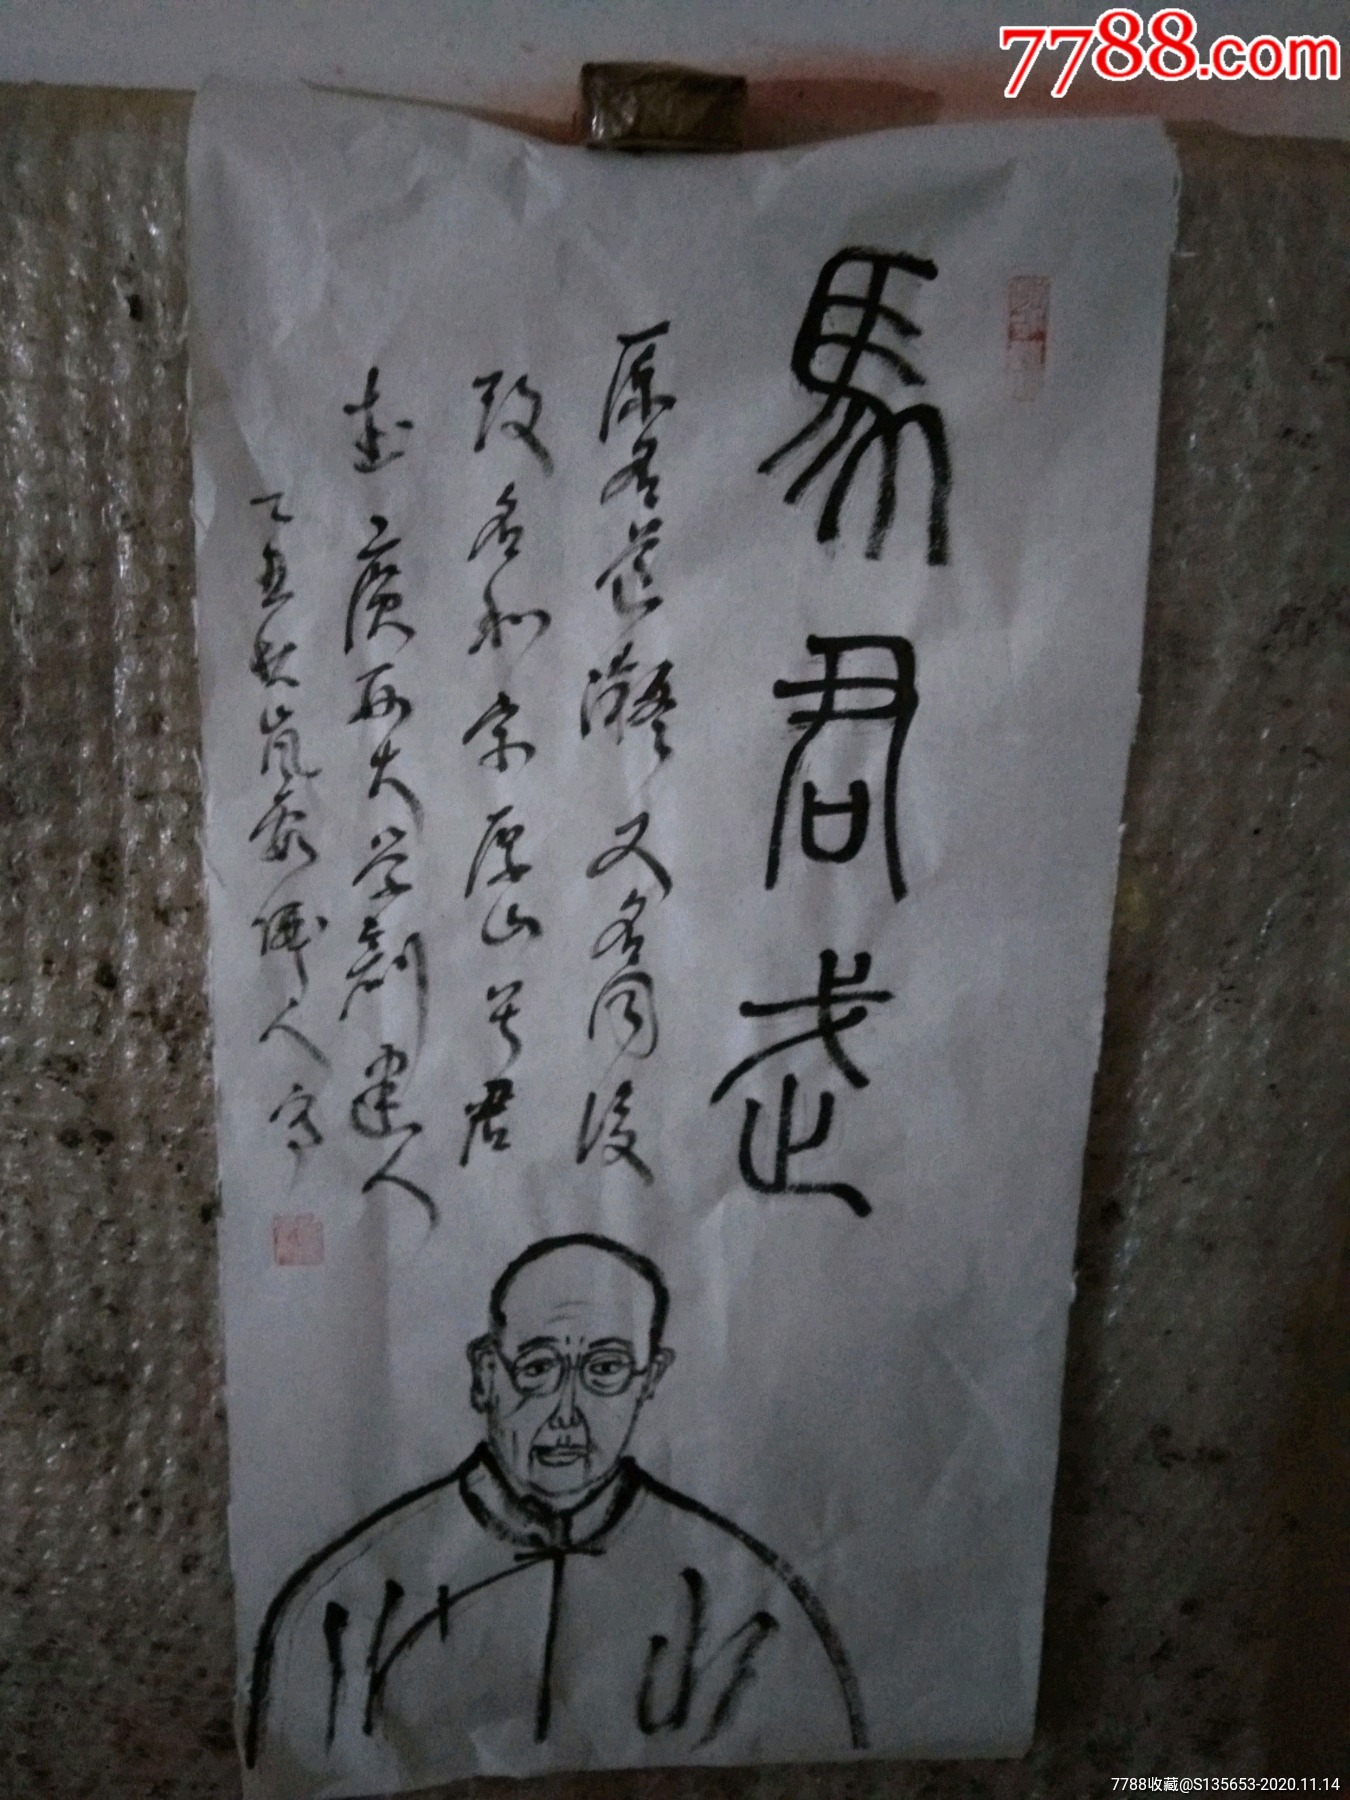 7788.com
馬君武
原名道凝又名同後
改名和字厚山号君
武廣西大学創建人
人寫
7788收藏@S135653-2020.11.14